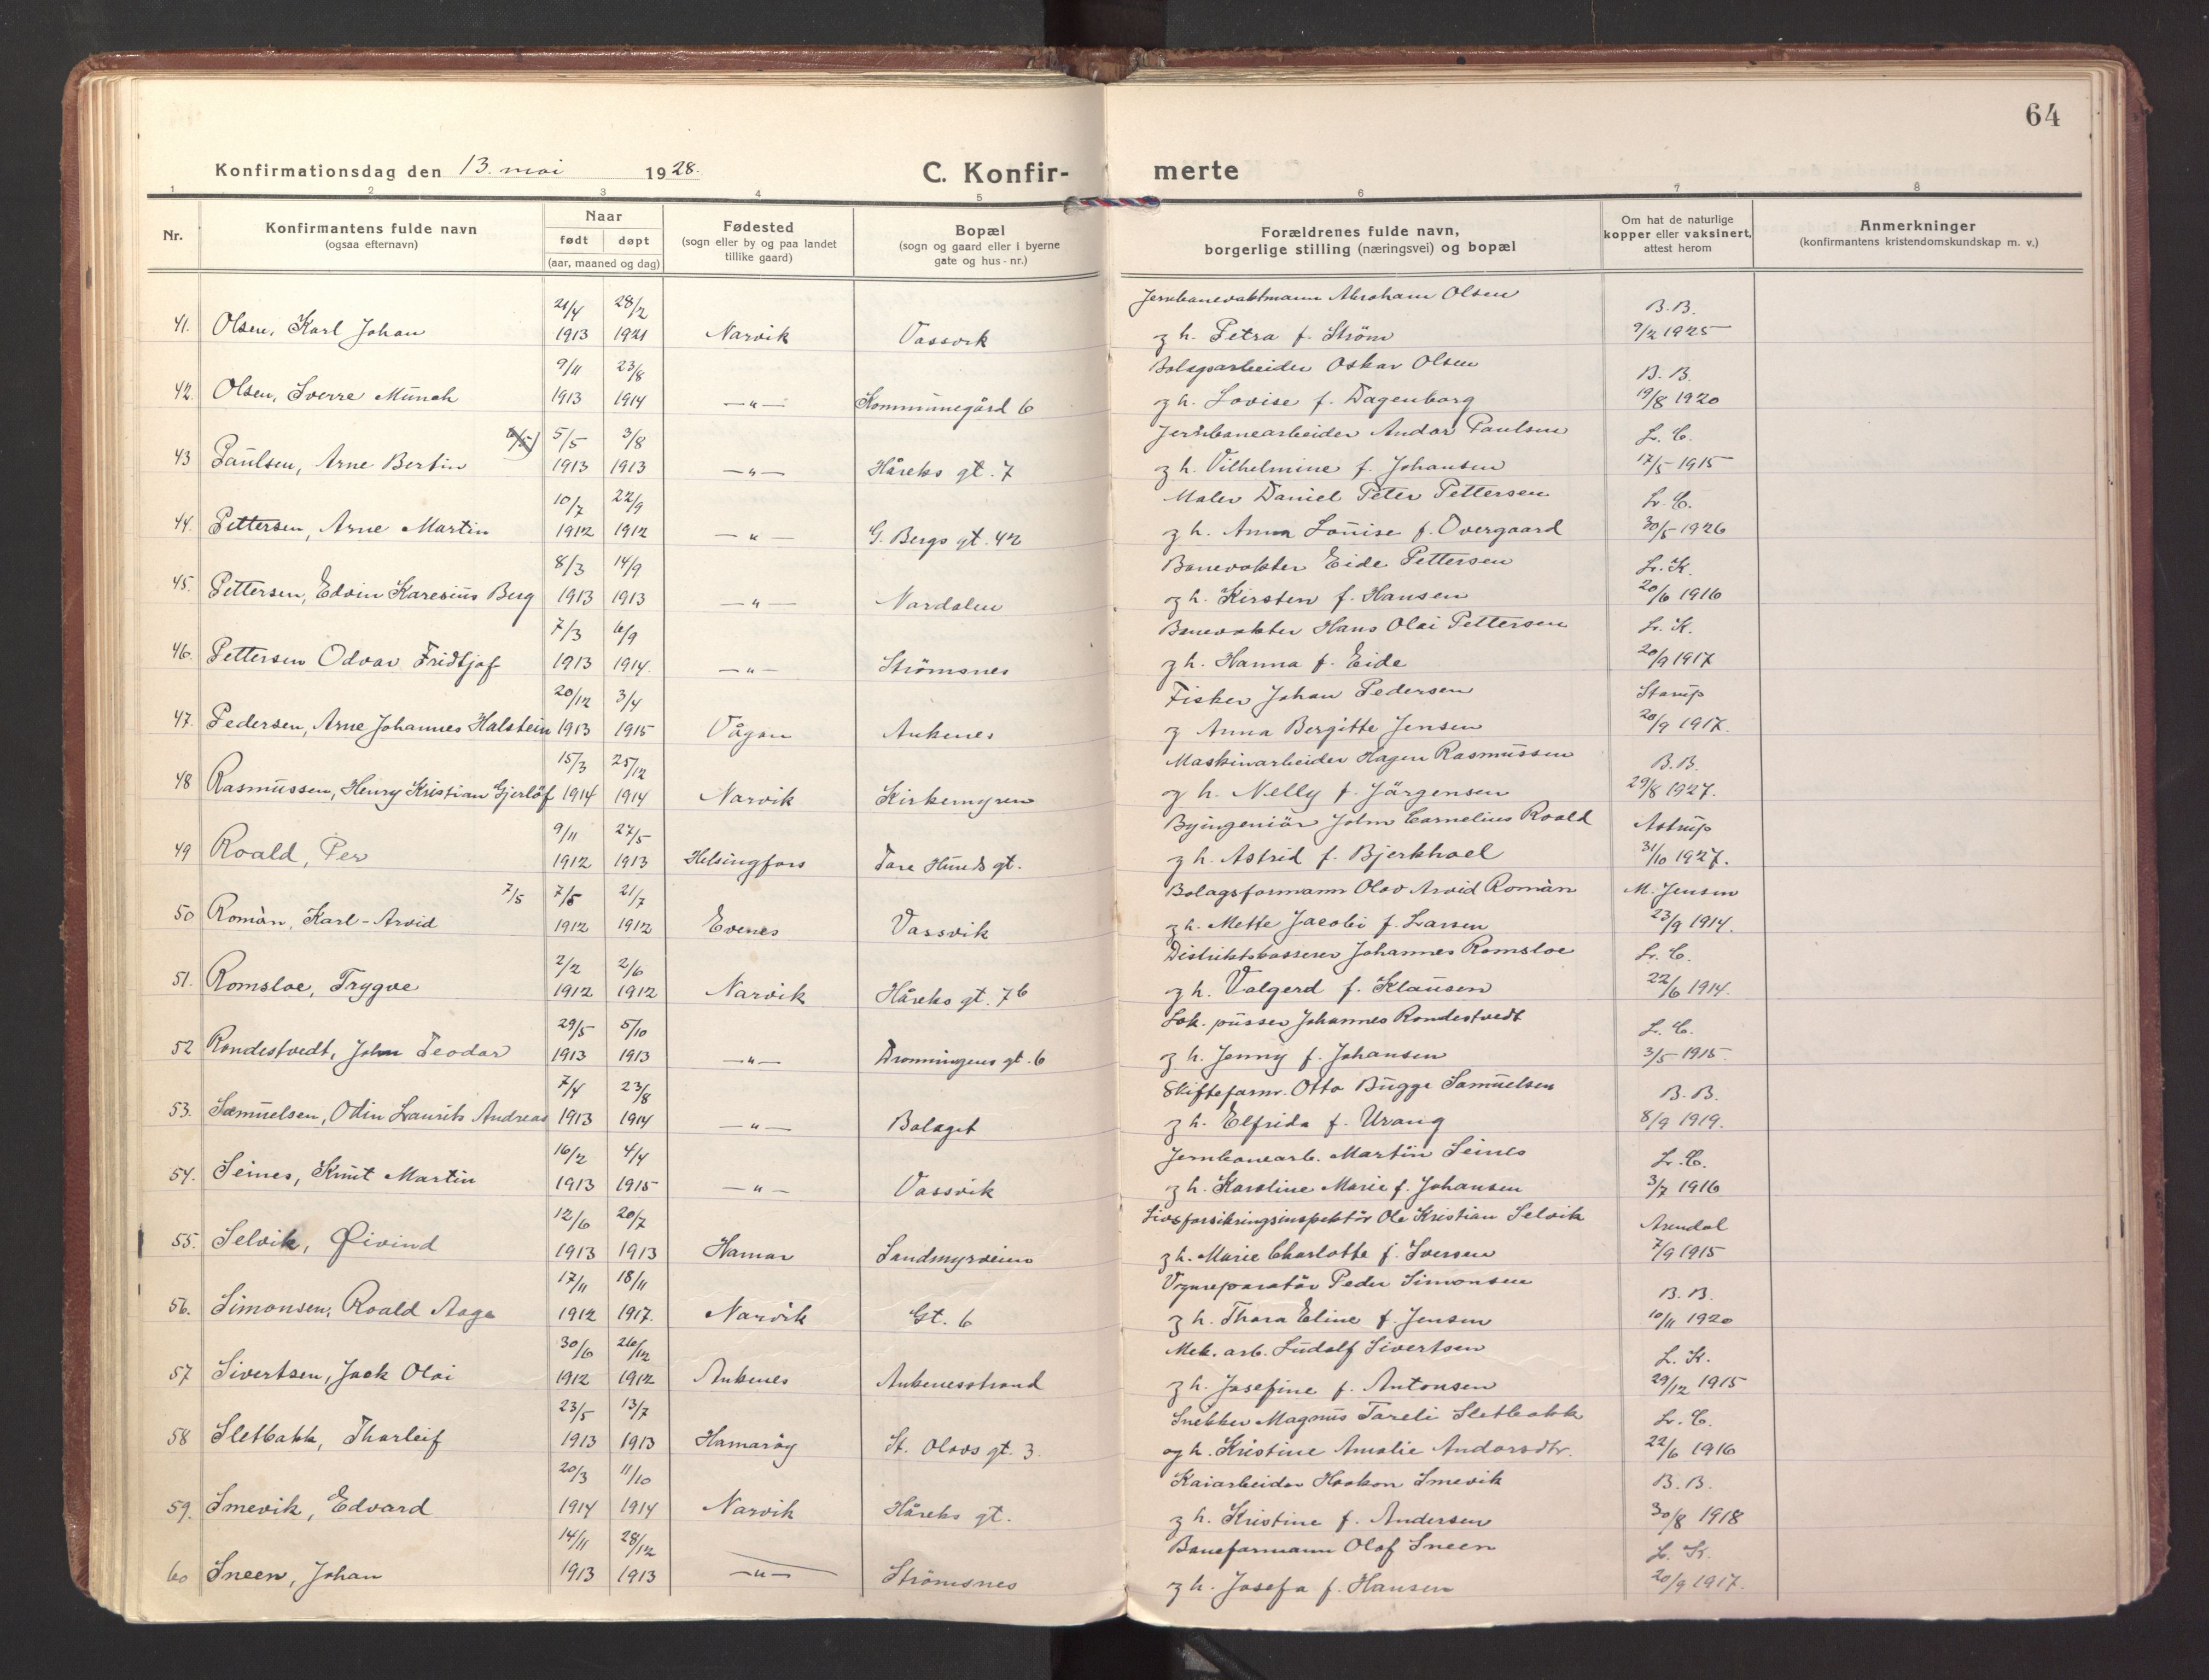 64
Konfirmationsdag den 13. mai 1928. C. Konfir- merte
1 2 3 4 5 6 7 8
Nr. Konfirmantens fulde navn (ogsaa efternavn) Naar født døpt (aar, maaned og dag) Fødested (sogn eller by og paa landet tillike gaard) Bopæl (sogn og gaard eller i byerne gate og hus-nr.) Forældrenes fulde navn, borgerlige stilling (næringsvei) og bopæl Om hat de naturlige kopper eller vaksinert, attest herom Anmerkninger (konfirmantens kristendomskundskap m. v.)
21/4 28/2 Jernbanevaktmann Abraham Olsen B.B.
41. Olsen, Karl Johan 1913 1921 Narvik Vassvik og h. Petra f. Strøm 9/2 1925
9/11 23/8 Bolagsarbeider Oskar Olsen B.B.
42. Olsen, Sverre Münch 1913 1914 —"— Kommunegård 6 og h. Lovise f. Dagenborg 19/8 1920
5/5 3/8 Jernbanearbeider Andor Paulsen L. C.
43 Paulsen, Arne Bertin 1913 1913 —"— Håreks gt. 7 og h. Vilhelmine f. Johansen 17/5 1915
10/7 22/9 Maler Daniel Peter Pettersen L. C.
44. Pettersen, Arne Martin 1912 1912 —"— G. Bergs gt. 42 og h. Anna Louise f. Overgaard 30/5 1926
8/3 14/9 Banevokter Eide Pettersen L. K.
45. Pettersen, Edvin Karesius Berg 1913 1913 —"— Nordalen og h. Kirsten f. Hansen 20/6 1916
7/3 6/9 Banevokter Hans Olai Pettersen L. K.
46. Pettersen Odvar Fridtjof 1913 1914. —"— Strömsnes og h. Hanna f. Eide 20/9 1917
20/12 3/4 Fisker Johan Pedersen Starup
47. Pedersen, Arne Johannes Halstein 1913 1915 Vågan Ankenes og Anna Bergitte Jensen 20/9 1917.
15/3 25/12 Maskinarbeider Hagen Rasmussen B.B.
48 Rasmussen, Henry Kristian Gjerløf 1914 1914 Narvik Kirkemyren og h. Nelly f. Jörgensen 29/8 1927.
9/11 27/5 Byingeniör John Cornelius Roald Astrup
49 Roald, Per 1912 1913 Helsingfors Tore Hunds gt. og h. Astrid f. Bjerkhoel 31/10 1927.
7/5 7/5 21/7 Bolagsformann Olav Arvid Romàn M. Jensen
50 Romàn, Karl-Arvid 1912 1912 Evenes Vassvik og h. Mette Jacobi f. Larsen 23/9 1914.
2/2 2/6 Distriktskasserer Johannes Romsloe L. C.
51. Romsloe, Trygve 1912 1912 Narvik Håreks gt. 7b og h. Valgerd f. Klausen 22/6 1914.
29/5 5/10 Lok. pusser Johannes Rondestvedt L. C.
52 Rondestvedt, John Teodor 1913 1913 —"— Dronningens gt. 6 og h. Jenny f. Johansen 3/5 1915.
7/4 23/8 Skifteform. Otto Bugge Samuelsen B.B.
53. Samuelsen, Odin Laurits Andreas 1913 1914 —"— Bolaget og h. Elfrida f. Urang 8/9 1919.
16/2 4/4 Jernbanearb. Martin Seines L. C.
54. Seines, Knut Martin 1913 1915 —"— Vassvik og h. Karoline Marie f. Johansen 3/7 1916
12/6 20/7 Livsforsikringsinspektör Ole Kristian Selvik Arendal
55. Selvik, Øivind 1913 1913 Hamar Sandmyrveien og h. Marie Charlotte f. Iversen 7/9 1915
17/11 18/11 Vognreparatör Peder Simonsen B.B.
56. Simonsen, Roald Aage 1912 1917. Narvik Gt. 6 og h. Thora Eline f. Jensen 10/11 1920
30/6 26/12 Mek. arb. Ludolf Sivertsen L. K.
57 Sivertsen, Jack Olai 1912 1912 Ankenes Ankenesstrand og h. Josefine f. Antonsen 29/12 1915
23/5 13/7 Snekker Magnus Toreli Sletbakk L. C.
58 Sletbakk, Thorleif 1913 1913 Hamaröy St. Olavs gt. 3. og h. Kristine Amalie Andorsdtr. 22/6 1916
20/3 11/10 Kaiarbeider Haakon Smevik B.B.
59. Smevik, Edvard 1914 1914 Narvik Håreks gt. og h. Kristine f. Andersen 30/8 1918
14/11 28/12 Baneformann Olaf Sneen L. K.
60 Sneen, Johan 1913 1913 —"— Strömsnes og h. Josefa f. Hansen 20/9 1917.